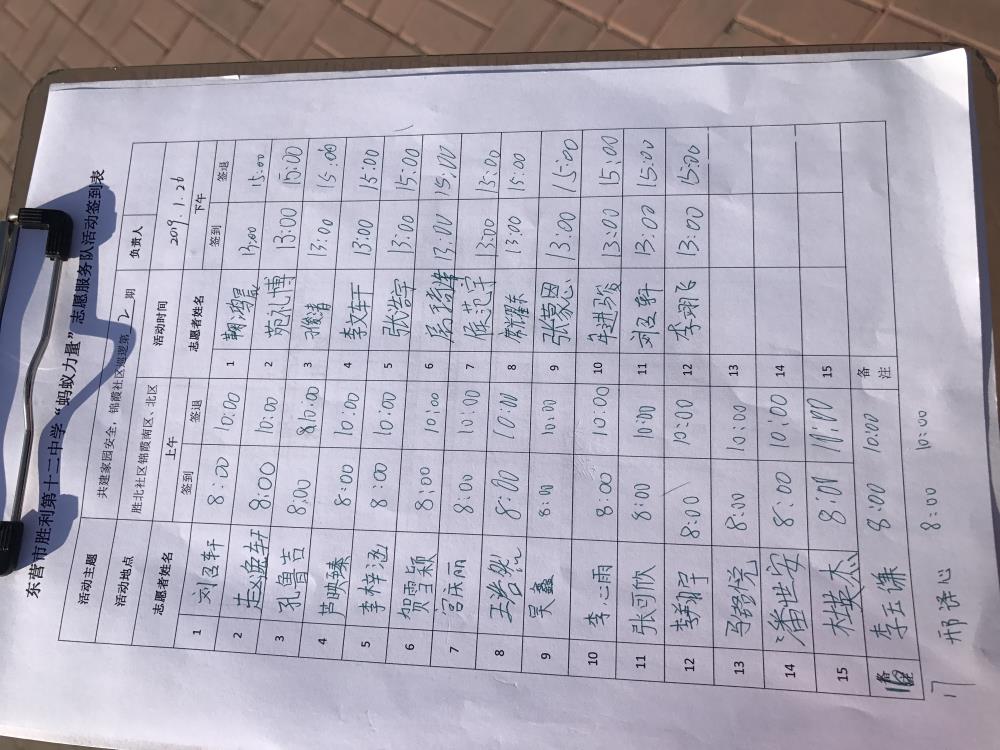 东营市胜利第十二中学“蚂蚁力量”志愿服务队活动签到表
活动主题 共建家园安全，锦霞社区巡逻第 2 期 负责人
活动地点 胜北社区锦霞南区、北区 活动时间 2019.1.26
志愿者姓名 上午 志愿者姓名 下午
签到 签退 签到 签退
1 刘召轩 8:00 10:00 1 鞠鸿晨 13:00 15:00
2 8:00 10:00 2 苑礼博 13:00 15:00
3 孔鲁吉 8:00 10:00 3 13:00 15:00
4 芦映臻 8:00 10:00 4 李文轩 13:00 15:00
5 李梓涵 8:00 10:00 5 张浩宇 13:00 15:00
6 贺雪颖 8:00 10:00 6 13:00 15:00
7 宫庆丽 8:00 10:00 7 侯范宇 13:00 15:00
8 8:00 10:00 8 13:00 15:00
9 吴鑫 8:00 10:00 9 张蒙恩 13:00 15:00
10 李心雨 8:00 10:00 10 牛进骏 13:00 15:00
11 张可欣 8:00 10:00 11 刘召轩 13:00 15:00
12 8:00 10:00 12 李翊飞 13:00 15:00
13 8:00 10:00 13
14 潘世安 8:00 10:00 14
15 杜英杰 8:00 10:00 15
16 李玉谦 8:00 10:00 备注
17 邢译心 8:00 10:00